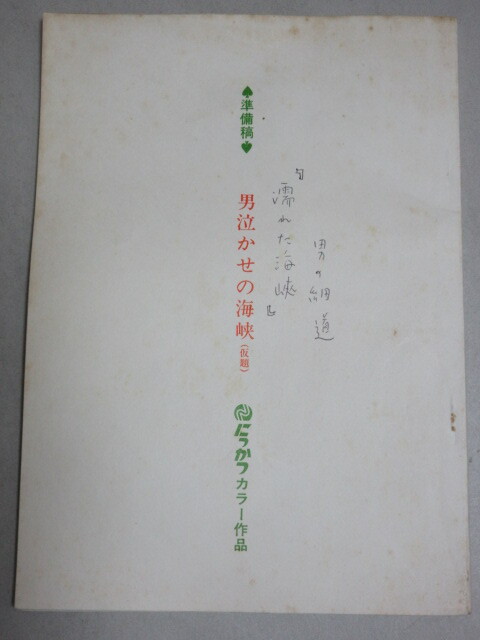 男の細道
『濡れた海峡』
♠準備稿♠
男泣かせの海峡（仮題）
にっかつカラー作品